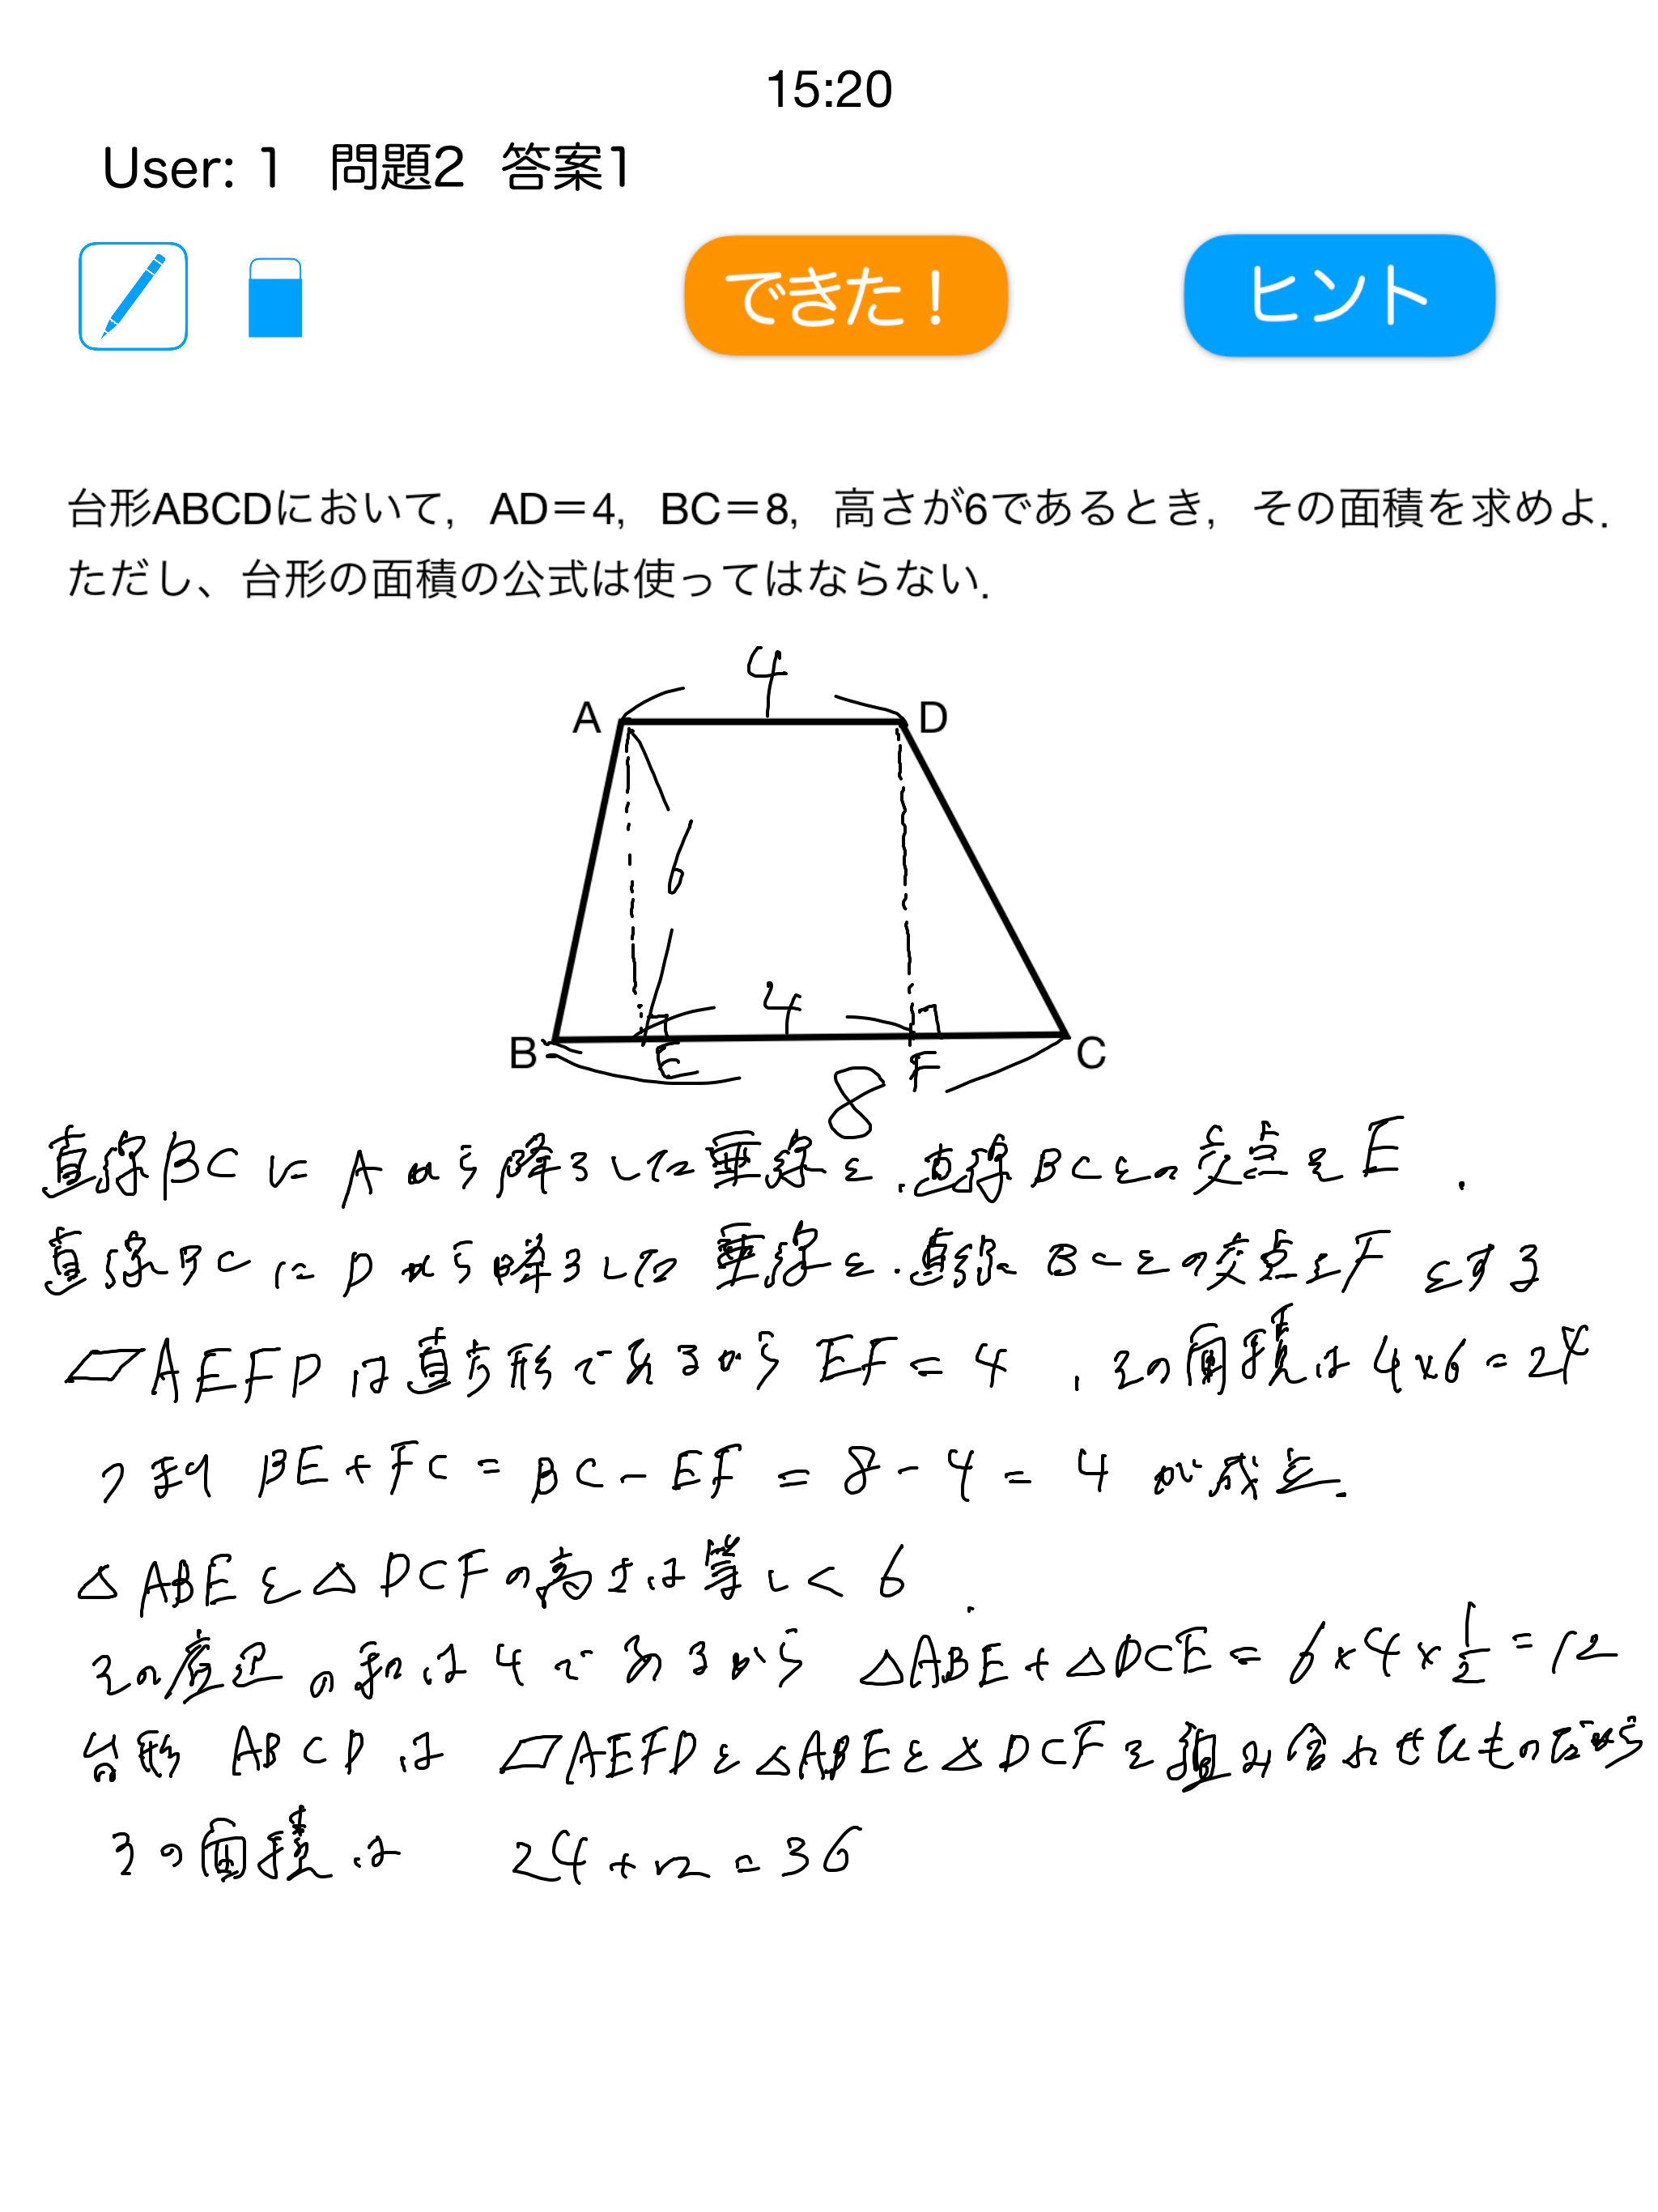 15:20
User: 1 問題2 答案1
できた！
ヒント
台形ABCDにおいて，AD＝4，BC＝8，高さが6であるとき，その面積を求めよ．
ただし、台形の面積の公式は使ってはならない．
4
A
D
6
4
B
E
F
C
8
直線BCにAから降ろした垂線と、直線BCとの交点をE、
直線BCにDから降ろした垂線と、直線BCとの交点をFとする
▱AEFDは直方形であるからEF=4、その面積は4×6=24
つまりBE+FC=BC-EF=8-4=4が成立.
△ABEと△DCFの高さは等しく6.
その底辺の和は4であるから △ABE+△DCE=6×4×1/2=12
台形ABCDは ▱AEFDと△ABEと△DCFを組み合わせたものだから
その面積は 24+12=36